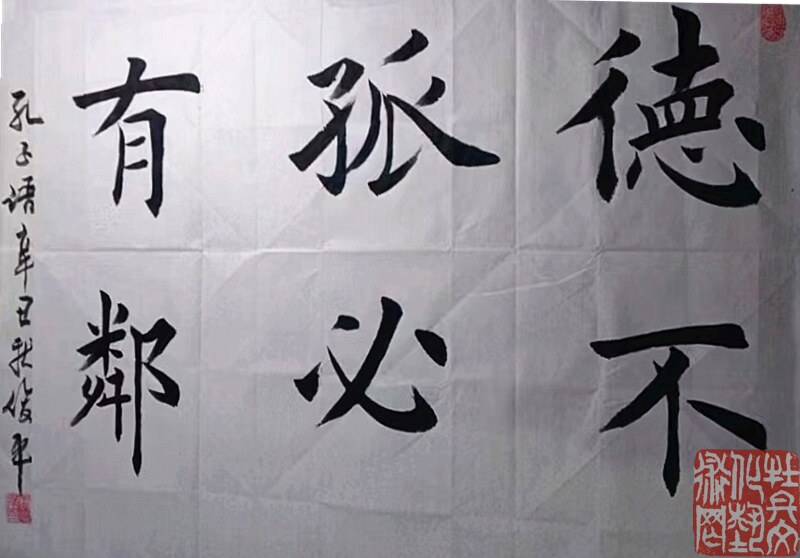 德不
孤必
有鄰
孔子语辛丑秋俊平